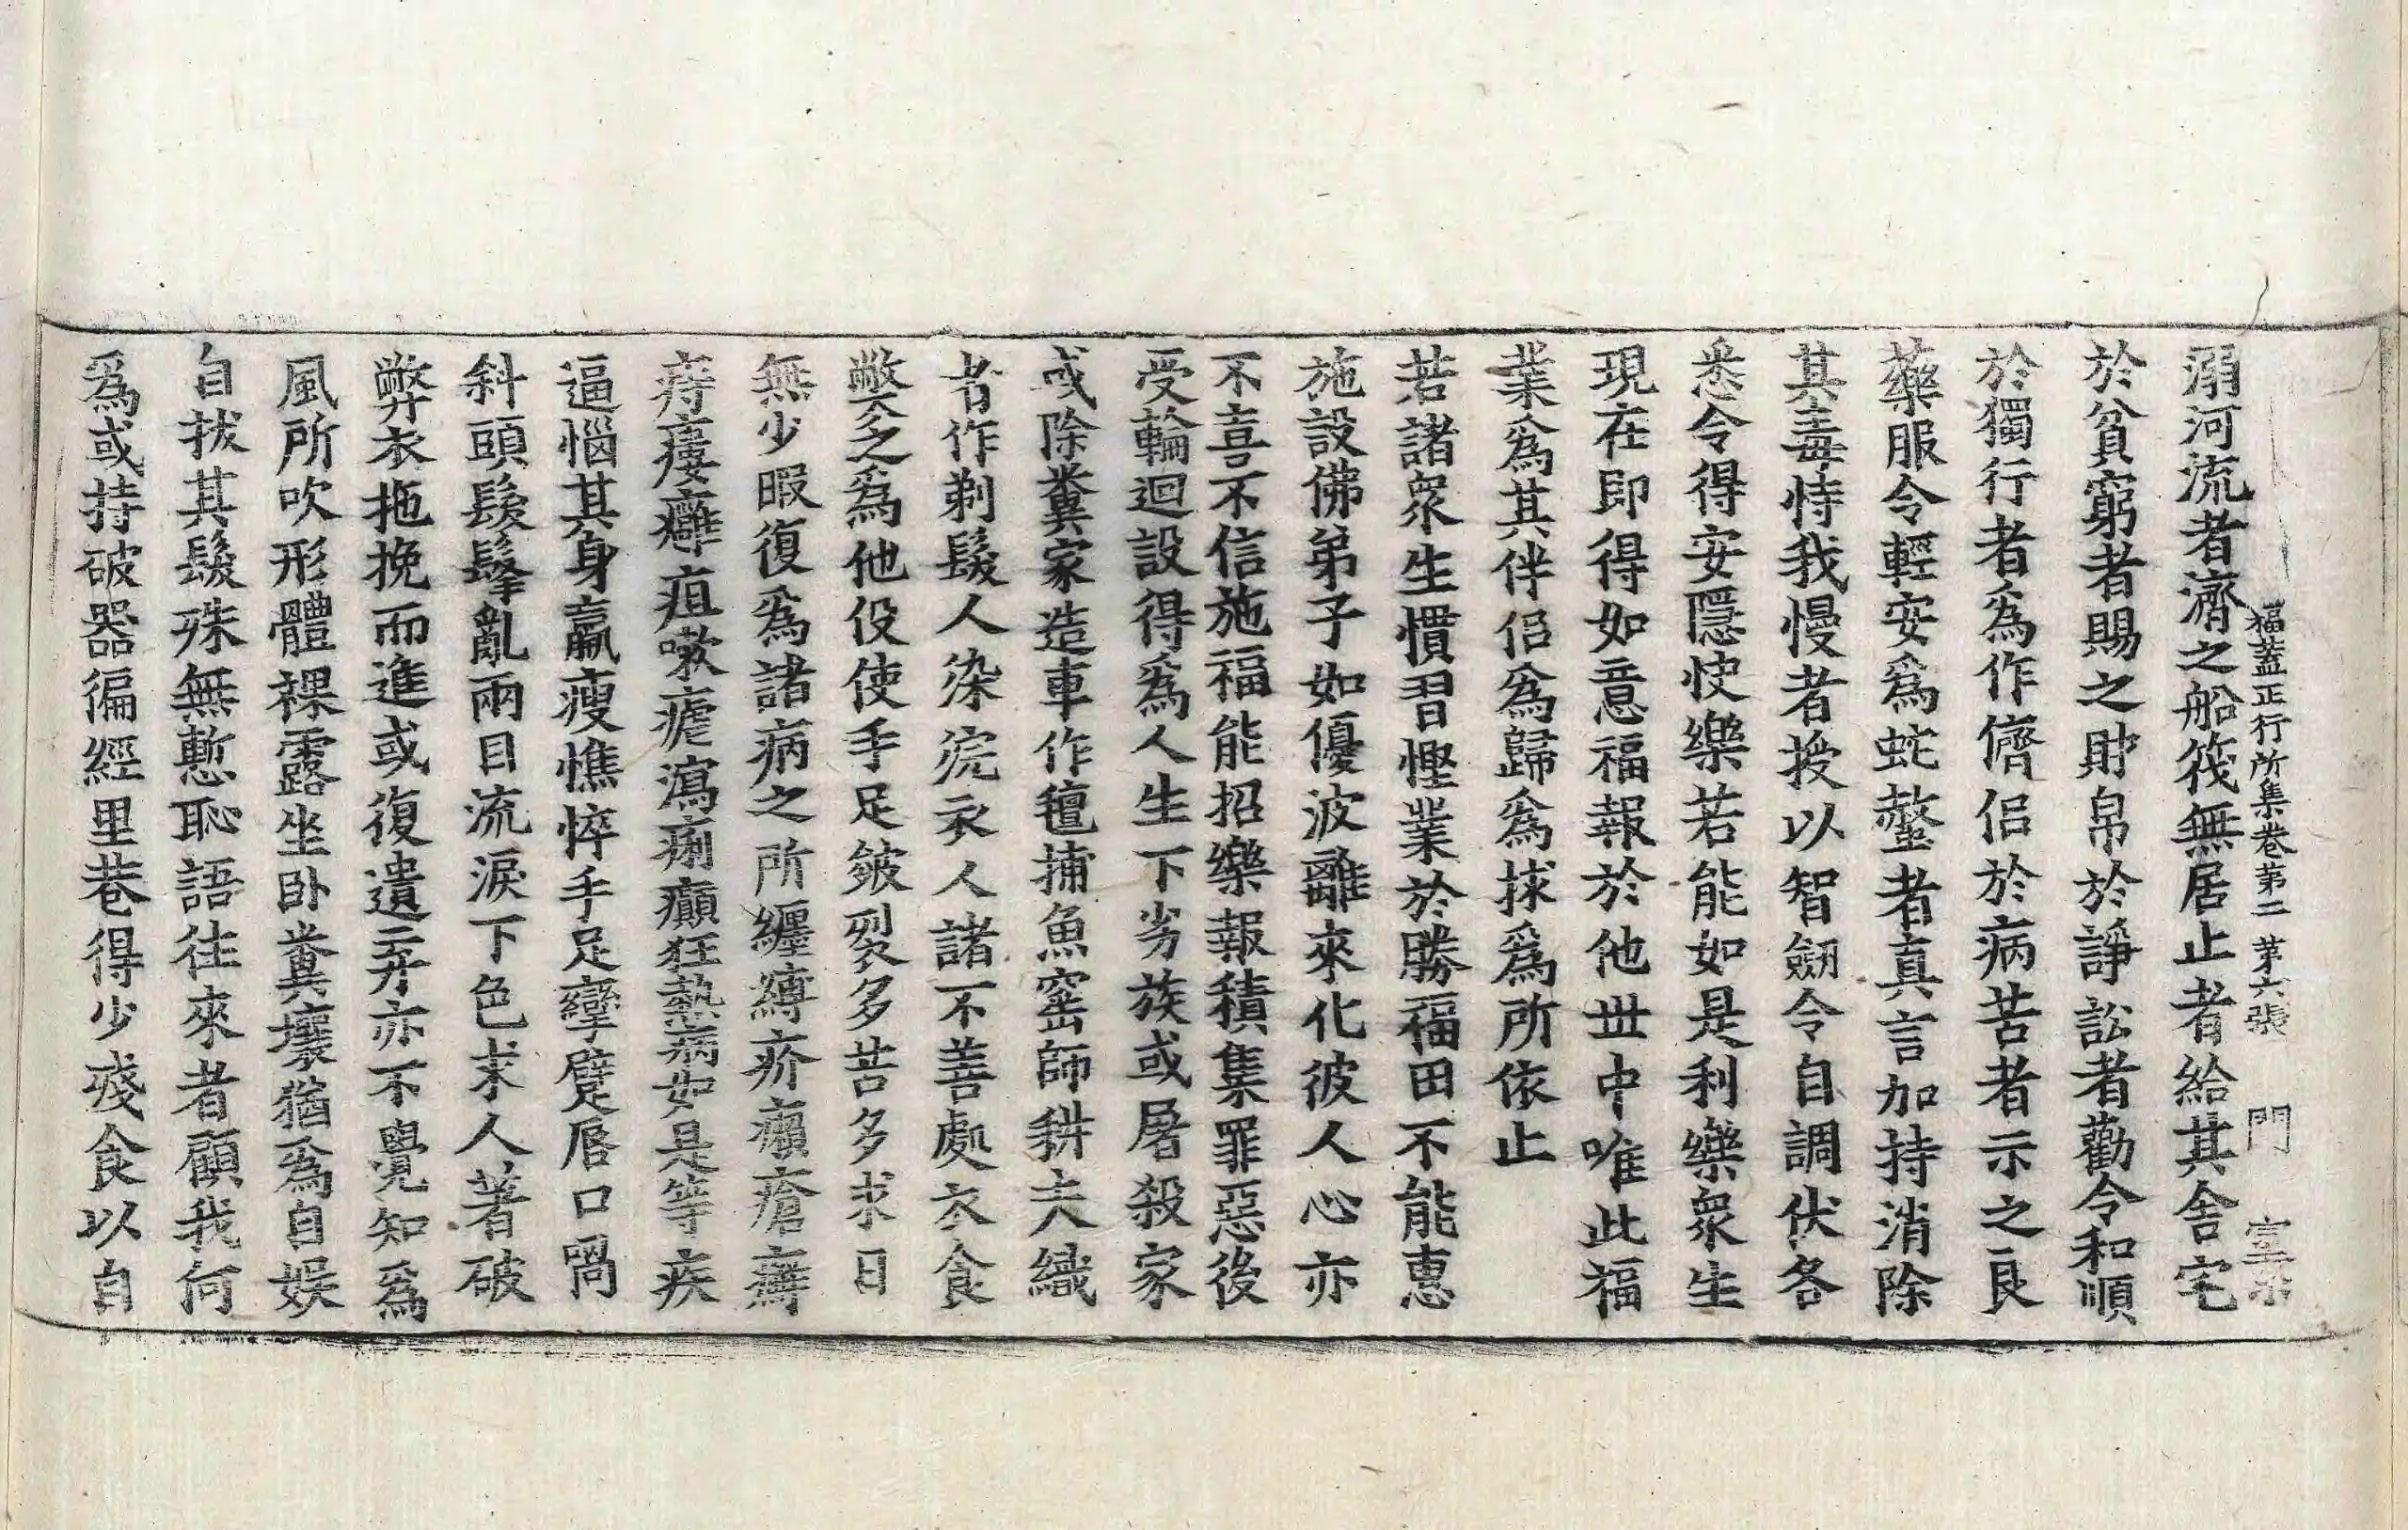 福蓋正行所集卷第二 第六張 門
溺河流者濟之船筏無居止者給其舍宅
於貧窮者賜之財帛於諍訟者勸令和順
於獨行者爲作儕侶於病苦者示之良
藥服令輕安爲蛇螫者真言加持消除
其毒恃我慢者授以智劒令自調伏各
悉令得安隱快樂若能如是利樂衆生
現在即得如意福報於他世中唯此福
業爲其伴侶爲歸爲捄爲所依止
若諸衆生慣習慳業於勝福田不能惠
施設佛弟子如優波離來化彼人心亦
不喜不信施福能招樂報積集罪惡後
受輪迴設得爲人生下劣族或屠殺家
或除糞家造車作氊捕魚窑師耕夫織
者作剃髮人染浣衣人諸不善處衣食
弊乏爲他役使手足皴裂多苦多求日
無少暇復爲諸病之所纏縛疥癩瘡癬
痔瘻癰疽嗽瘧瀉痢癲狂熱病如是等疾
逼惱其身羸瘦憔悴手足攣躄唇口喎
斜頭髮髼亂兩目流淚下色求人著破
弊衣拖挽而進或復遺弃亦不覺知爲
風所吹形體裸露坐卧糞壤猶爲自娱
自拔其髮殊無慙恥語往來者顧我何
爲或持破器徧經里巷得少殘食以自